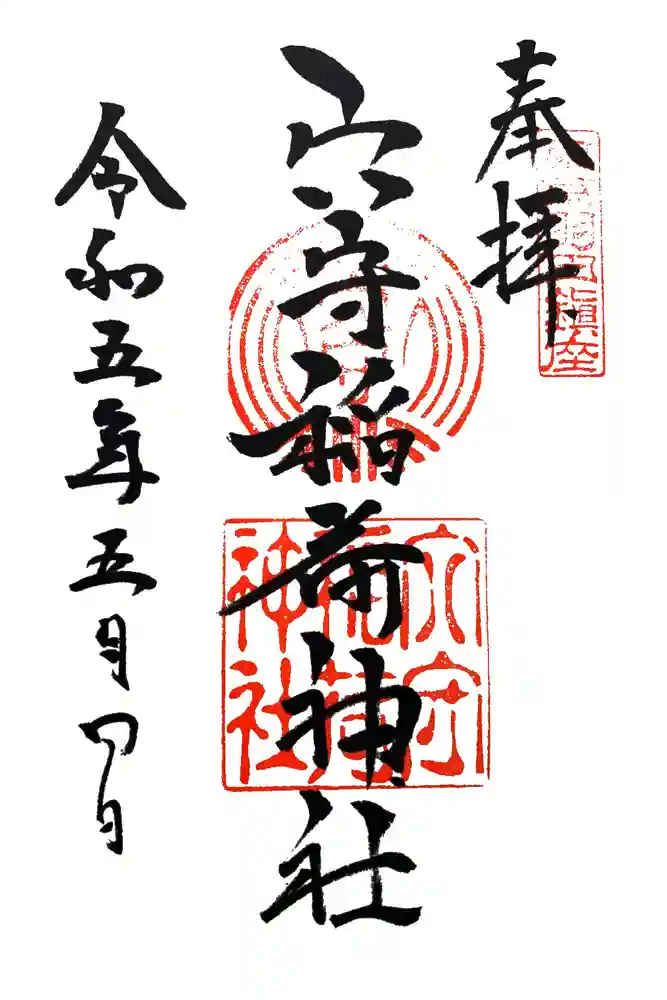 奉拝
鎭座
穴守稲荷神社
穴守
稲荷
神社
令和五年五月四日